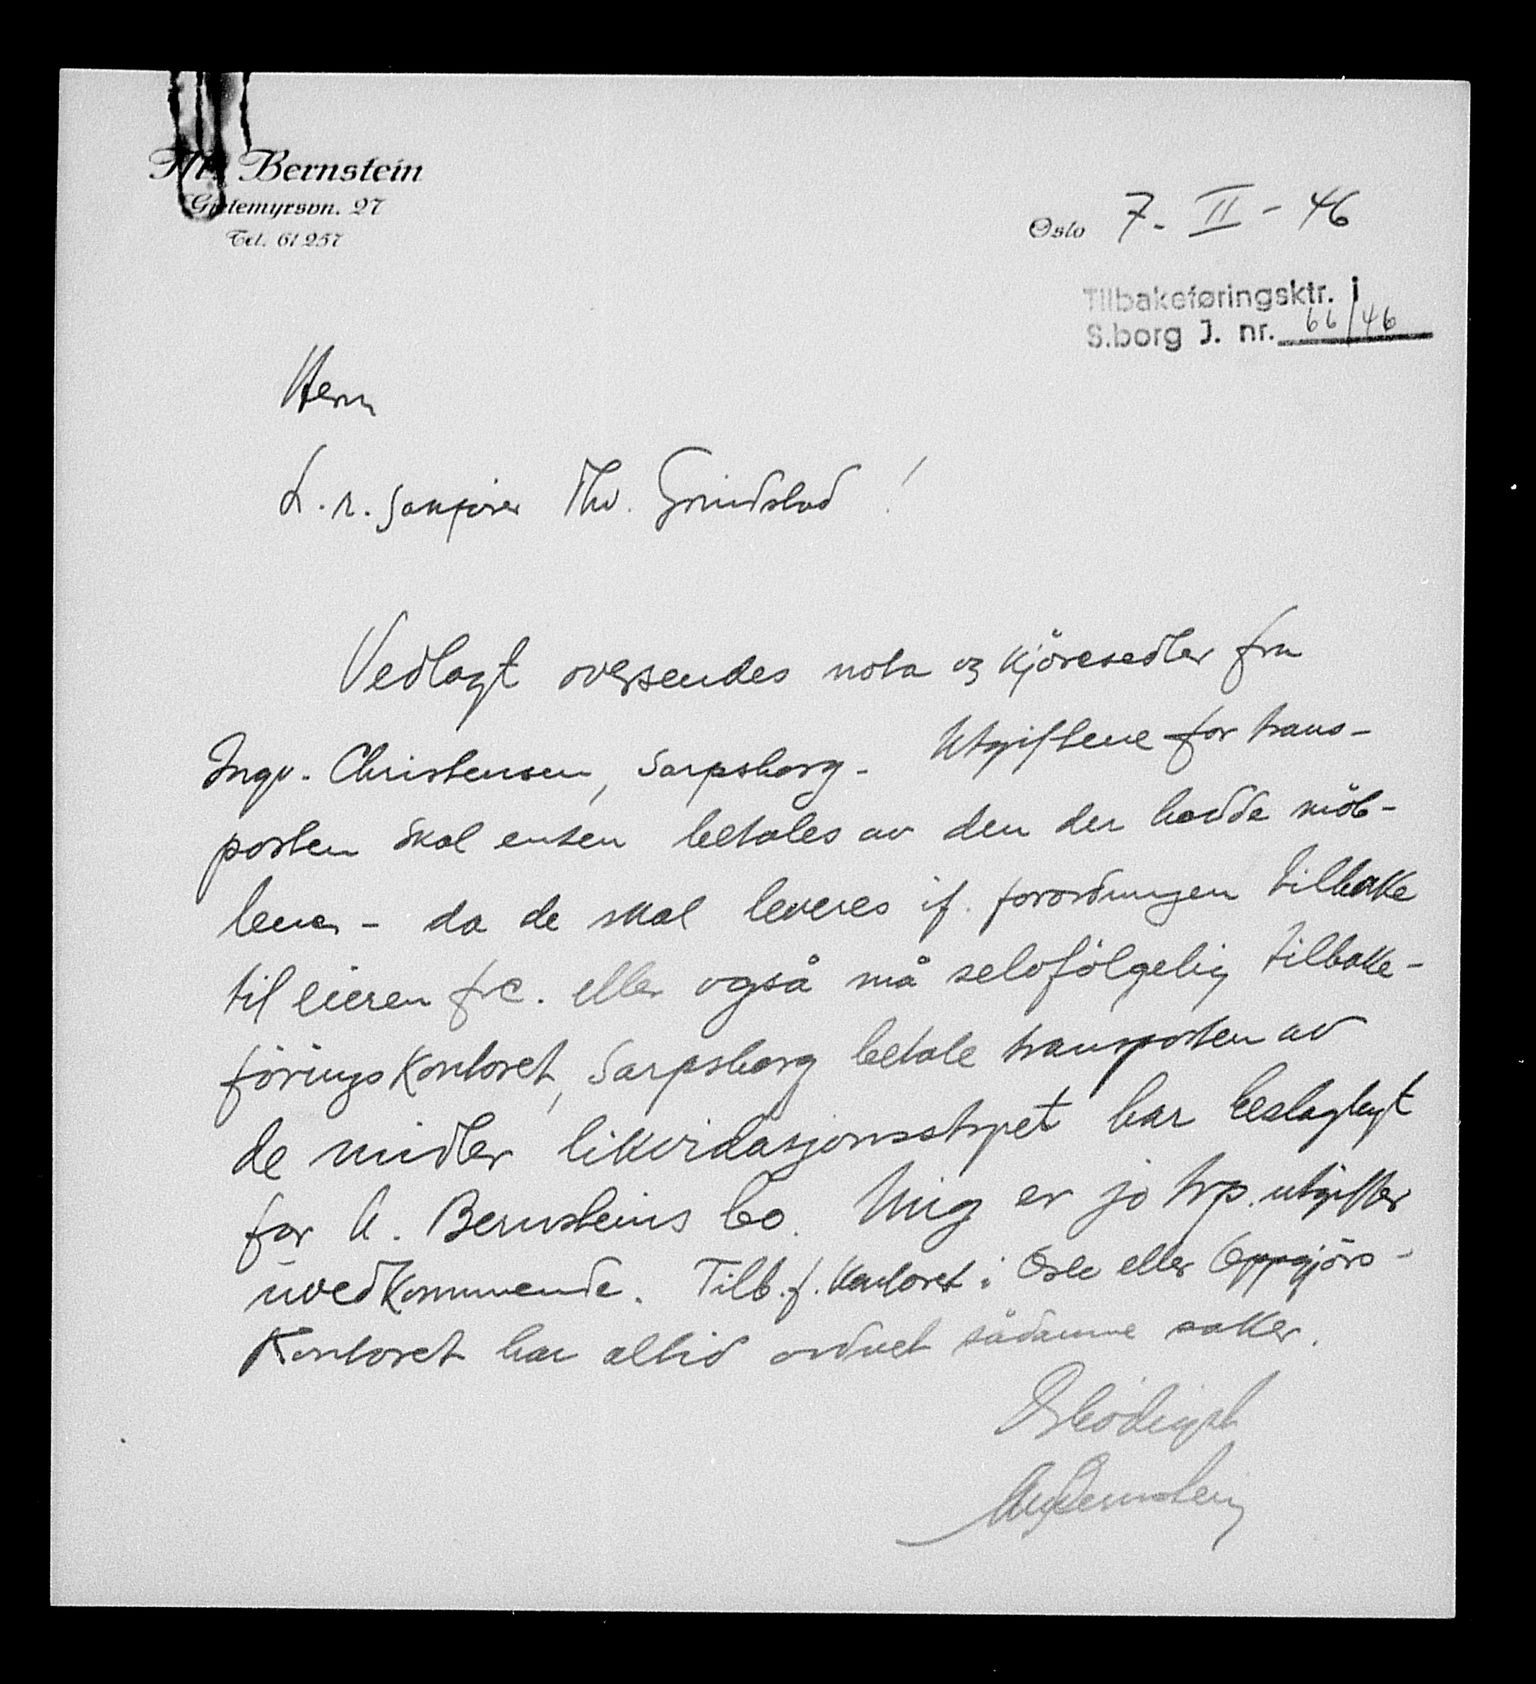 Bernstein
Gjetemyrsvn. 27
Tel. 61 257
Oslo 7. II - 46
Tilbakeføringsktr. i
S.borg J. nr. 66/46
Herr
L.r. sakfører Thv. Grindstad!
Vedlagt oversendes nota og kjöresedler fra
Ingv. Christensen, Sarpsborg. Utgiftene for trans-
porten skal enten betales av den der hadde möb-
lene - da de skal leveres if. forordningen tilbake
til eieren frc. eller også må selvfölgelig tilbake-
förings kontoret, Sarpsborg betale transporten av
de midler likvidasjonsstyret har beslaglagt
for A. Bernsteins Co. Mig er jo trp. utgifter
uvedkommende. Tilb.f. kontoret i Oslo eller Oppgjörs-
Kontoret har altid ordnet sådanne saker.
Ærbödigst
Bernstein